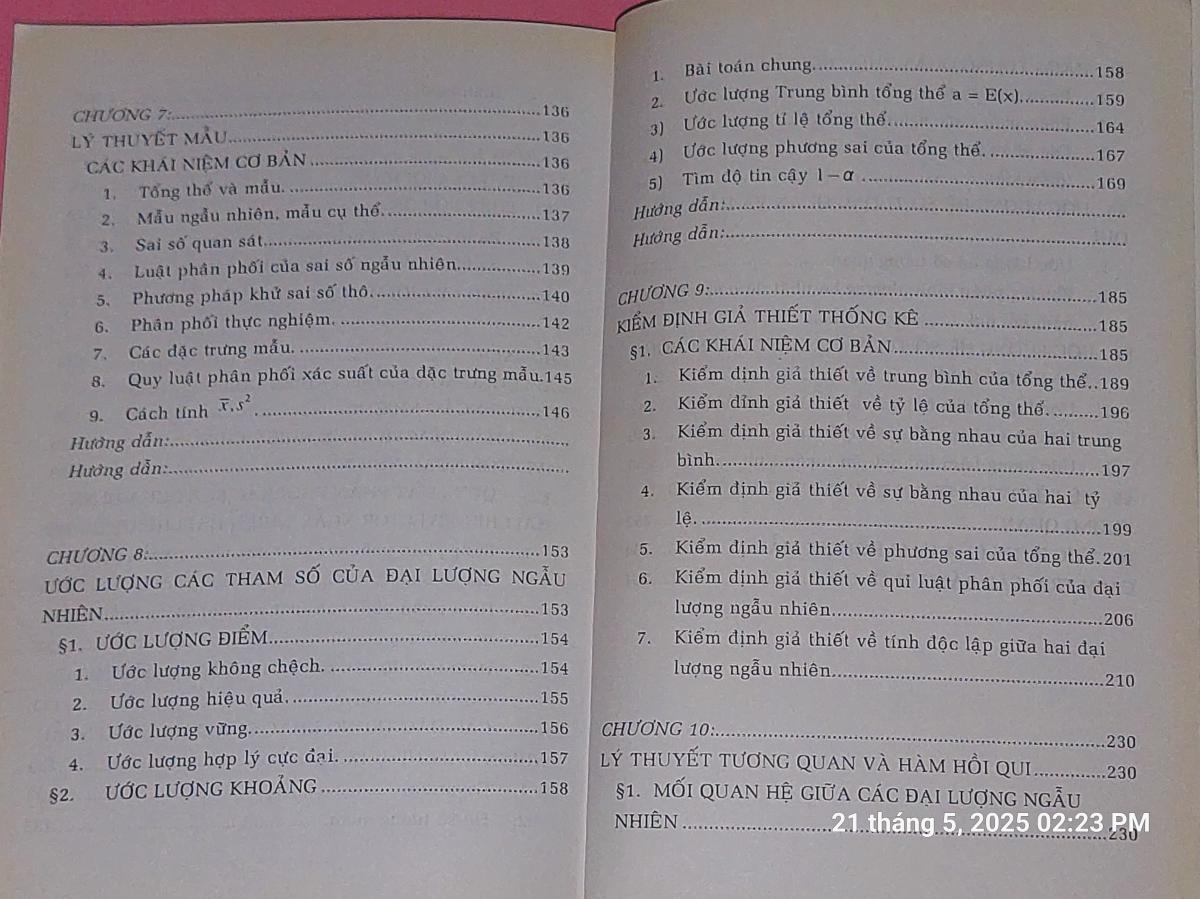 CHƯƠNG 7:..........136
LÝ THUYẾT MẪU..........136
CÁC KHÁI NIỆM CƠ BẢN..........136
1. Tổng thể và mẫu...........136
2. Mẫu ngẫu nhiên, mẫu cụ thể...........137
3. Sai số quan sát..........138
4. Luật phân phối của sai số ngẫu nhiên..........139
5. Phương pháp khử sai số thô...........140
6. Phân phối thực nghiệm...........142
7. Các đặc trưng mẫu...........143
8. Quy luật phân phối xác suất của đặc trưng mẫu.145
9. Cách tính x̅, s²...........146
Hướng dẫn:..........
Hướng dẫn:..........
CHƯƠNG 8:..........153
ƯỚC LƯỢNG CÁC THAM SỐ CỦA ĐẠI LƯỢNG NGẪU
NHIÊN..........153
§1. ƯỚC LƯỢNG ĐIỂM..........154
1. Ước lượng không chệch...........154
2. Ước lượng hiệu quả...........155
3. Ước lượng vững...........156
4. Ước lượng hợp lý cực đại...........157
§2. ƯỚC LƯỢNG KHOẢNG..........158
1. Bài toán chung...........158
2. Ước lượng Trung bình tổng thể a = E(x)...........159
3) Ước lượng tỉ lệ tổng thể...........164
4) Ước lượng phương sai của tổng thể...........167
5) Tìm độ tin cậy 1−α..........169
Hướng dẫn:..........
Hướng dẫn:..........
CHƯƠNG 9:..........185
KIỂM ĐỊNH GIẢ THIẾT THỐNG KÊ..........185
§1. CÁC KHÁI NIỆM CƠ BẢN..........185
1. Kiểm định giả thiết về trung bình của tổng thể..189
2. Kiểm dĩnh giả thiết về tỷ lệ của tổng thể..........196
3. Kiểm định giả thiết về sự bằng nhau của hai trung
bình...........197
4. Kiểm định giả thiết về sự bằng nhau của hai tỷ
lệ...........199
5. Kiểm định giả thiết về phương sai của tổng thể.201
6. Kiểm định giả thiết về qui luật phân phối của đại
lượng ngẫu nhiên..........206
7. Kiểm định giả thiết về tính độc lập giữa hai đại
lượng ngẫu nhiên..........210
CHƯƠNG 10:..........230
LÝ THUYẾT TƯƠNG QUAN VÀ HÀM HỒI QUI..........230
§1. MỐI QUAN HỆ GIỮA CÁC ĐẠI LƯỢNG NGẪU
NHIÊN..........230
21 tháng 5, 2025 02:23 PM